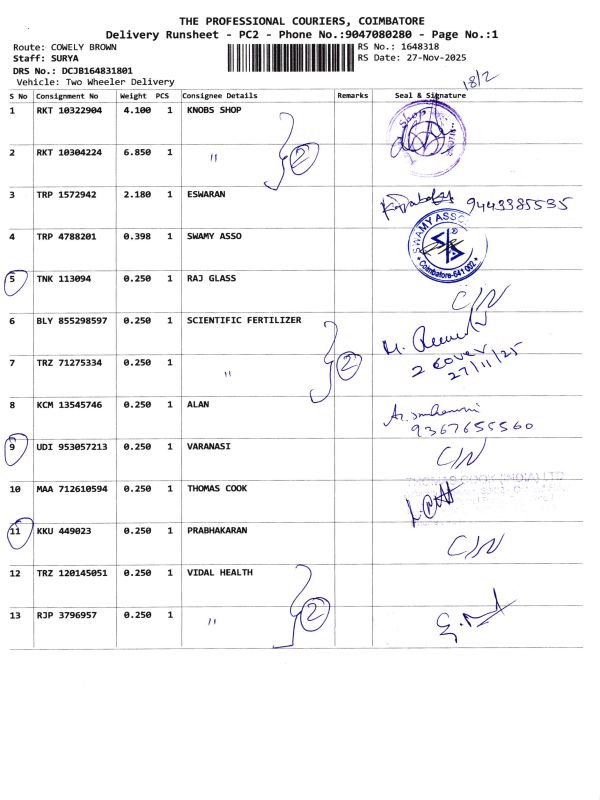 THE PROFESSIONAL COURIERS, COIMBATORE
Delivery Runsheet - PC2 - Phone No.:9047080280 - Page No.:1
Route: COWELY BROWN
RS No.: 1648318
Staff: SURYA
RS Date: 27-Nov-2025
DRS No.: DCJB164831801
Vehicle: Two Wheeler Delivery
18/2
S No Consignment No Weight PCS Consignee Details Remarks Seal & Signature
1 RKT 10322904 4.100 1 KNOBS SHOP
2 RKT 10304224 6.850 1 " 2
3 TRP 1572942 2.180 1 ESWARAN 9443385535
4 TRP 4788201 0.398 1 SWAMY ASSO SWAMY ASSO Coimbatore-641 002
5 TNK 113094 0.250 1 RAJ GLASS C/N
6 BLY 855298597 0.250 1 SCIENTIFIC FERTILIZER
7 TRZ 71275334 0.250 1 " 2 2 cover 27/11/25
8 KCM 13545746 0.250 1 ALAN
9367655560
9 UDI 953057213 0.250 1 VARANASI C/N
10 MAA 712610594 0.250 1 THOMAS COOK THOMAS COOK (INDIA) LTD
11 KKU 449023 0.250 1 PRABHAKARAN C/N
12 TRZ 120145051 0.250 1 VIDAL HEALTH
13 RJP 3796957 0.250 1 " 2